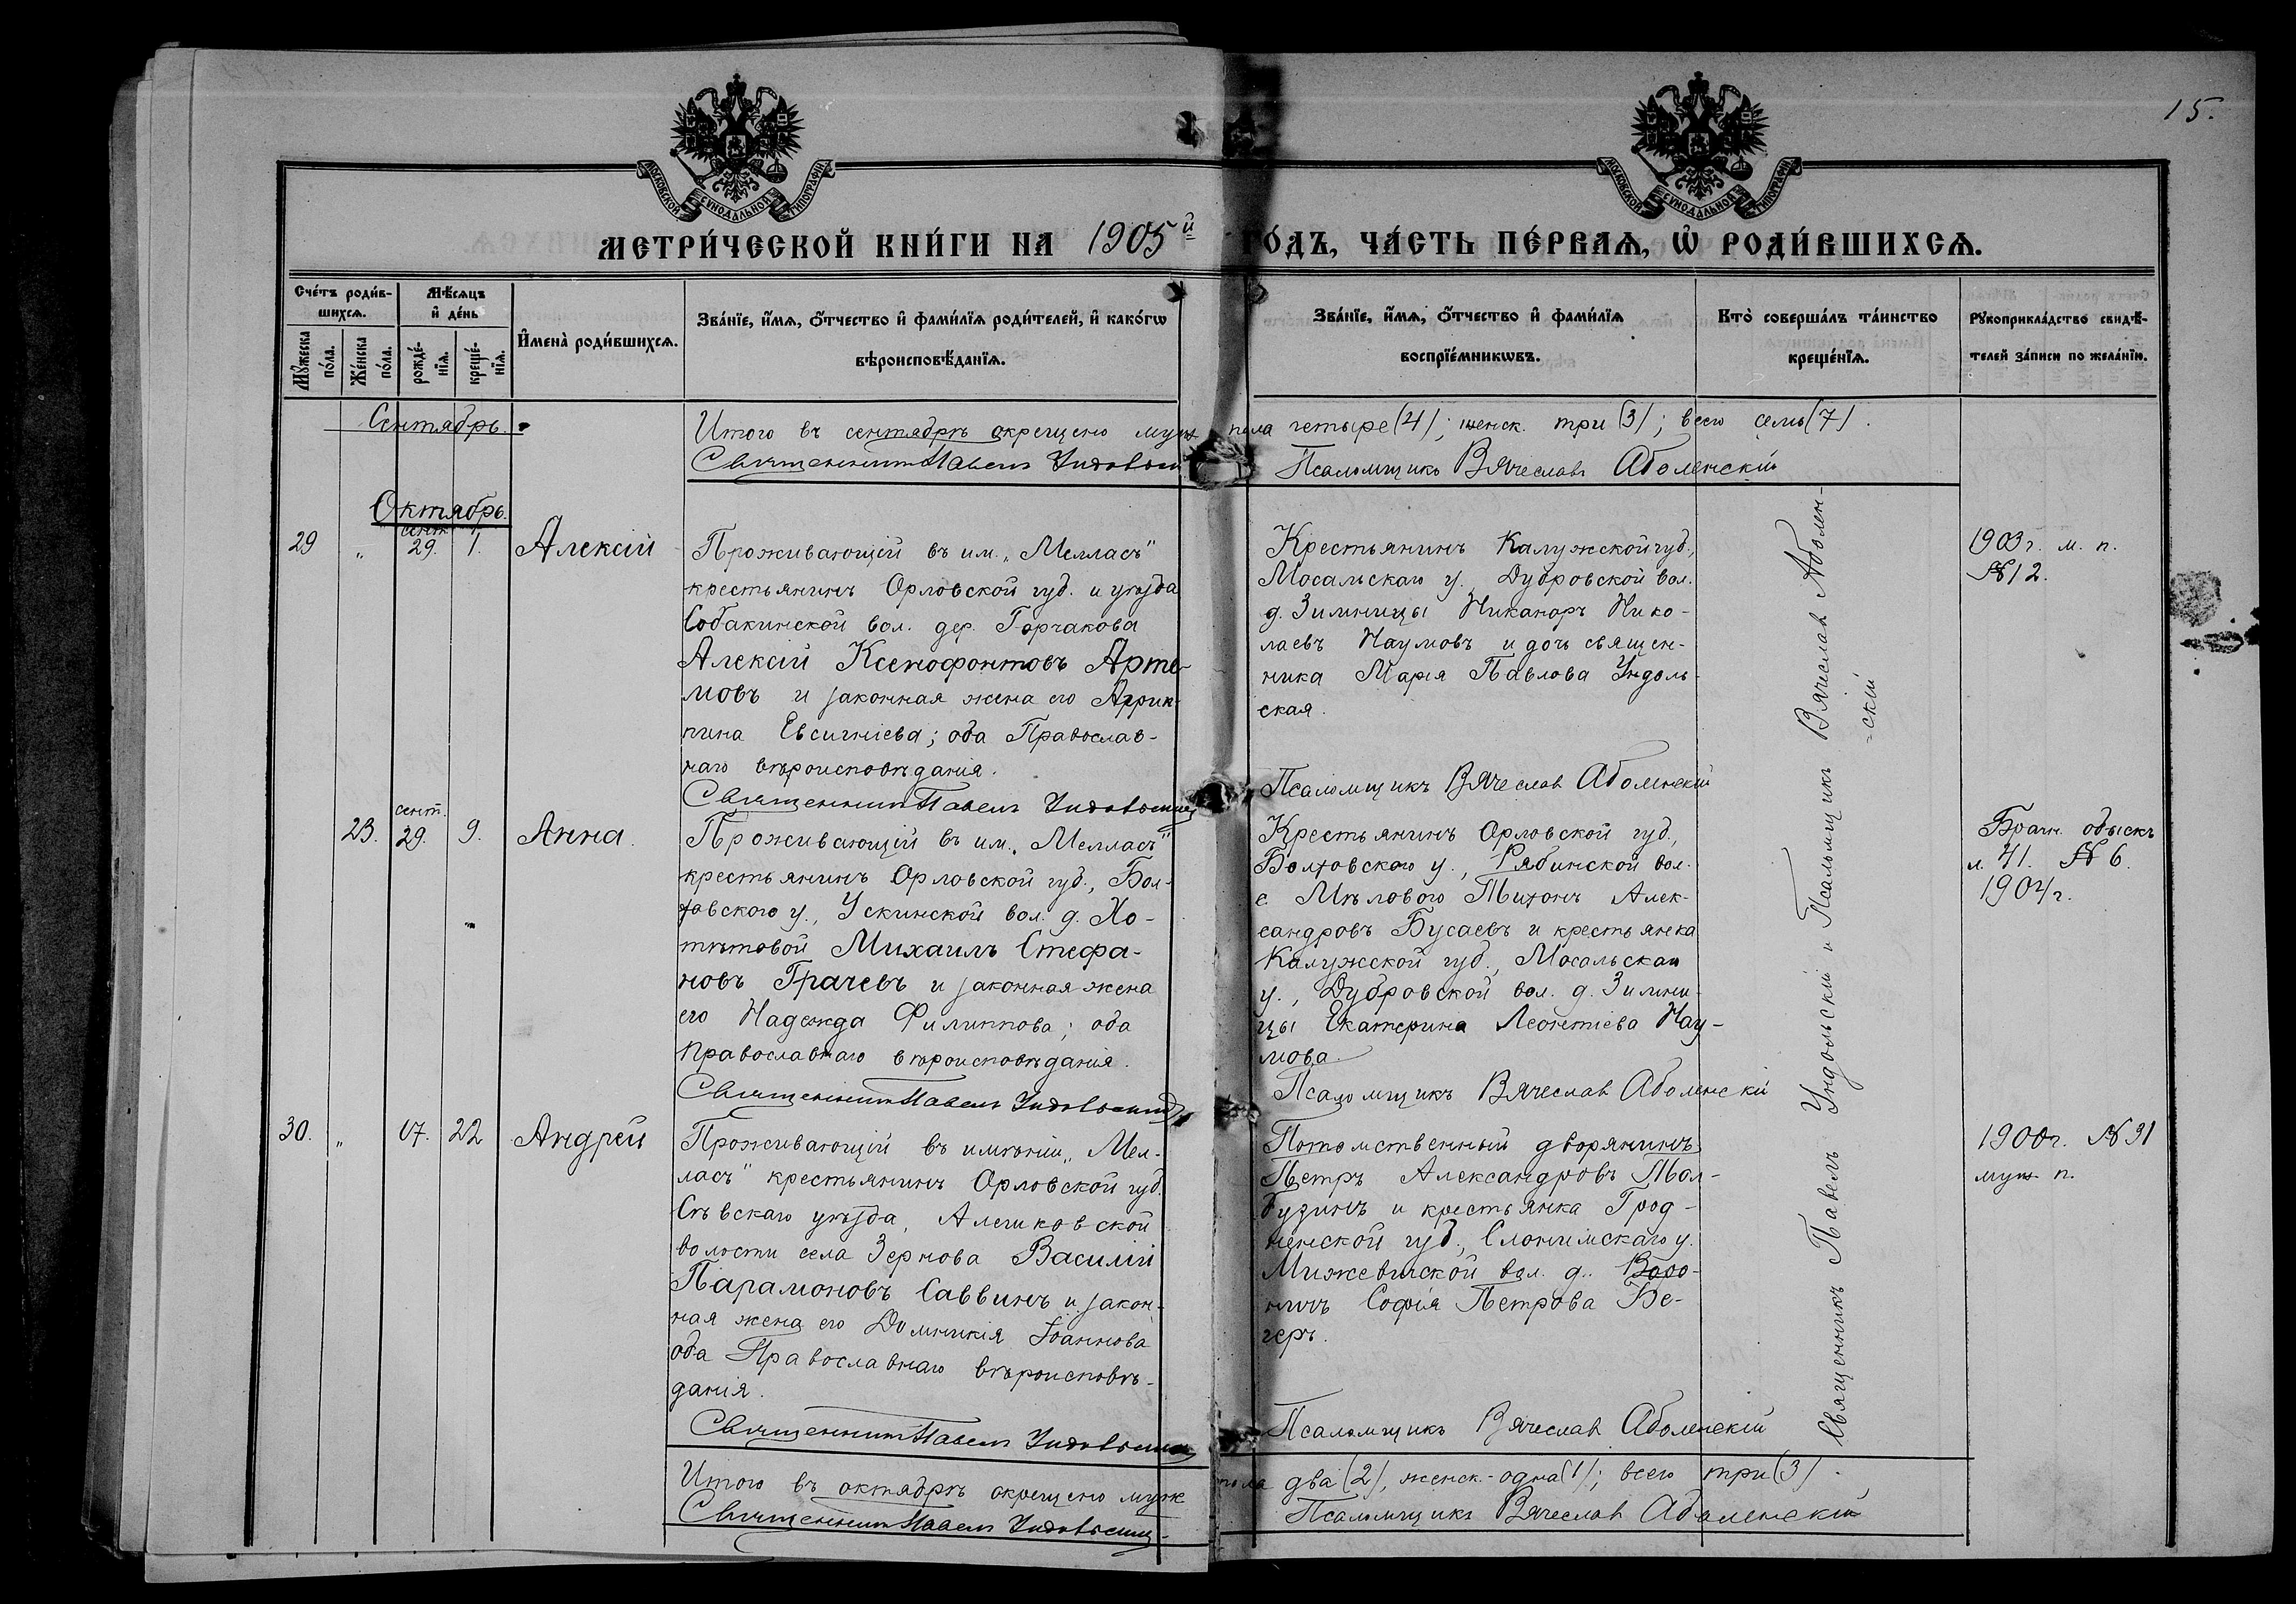 15.
МОСКОВСКОЙ СУНОДАЛЬНОЙ ТИПОГРАФІИ
МОСКОВСКОЙ СУНОДАЛЬНОЙ ТИПОГРАФІИ
МЕТРИ́ЧЕСКОЙ КНИ́ГИ НА 1905й ГО́ДЪ, ЧА́СТЬ ПЕ́РВАѦ, Ѡ҆ РОДИ́ВШИХСѦ.
Сче́тъ роди́в-
шихсѧ.
Мꙋ́жеска по́ла.
Же́нска по́ла.
Мѣ́сѧцъ
и҆ де́нь
рожде́-
нїѧ.
креще́-
нїѧ.
И҆мена̀ роди́вшихсѧ.
Зва́нїе, и҆́мѧ, ѻ҆́тчество и҆ фами́лїѧ роди́телей, и҆ како́гѡ
вѣроисповѣ́данїѧ.
Зва́нїе, и҆́мѧ, ѻ҆́тчество и҆ фами́лїѧ
воспрїе́мникѡвъ.
Кто̀ соверша́лъ та́инство
креще́нїѧ.
Рꙋкоприкла́дство свидѣ́-
телей за́писи по жела́нїю.
Сентябрь.
Итого въ сентябрѣ окрещено муж. пола четыре (4); женск. три (3); всего семь (7).
Священникъ Павелъ Ундольскій
Псаломщикъ Вячеславъ Аболенскій
Октябрь.
29 " сент. 29. 1. Алексій
Проживающій въ им. „Мелласъ"
крестьянинъ Орловской губ. и уѣзда
Собакинской вол. дер. Горчакова
Алексій Ксенофонтовъ Арте-
мовъ и законная жена его Агрип-
пина Евсигніева; оба Православ-
наго вѣроисповѣданія.
Священникъ Павелъ Ундольскій
Крестьянинъ Калужской губ.,
Мосальскаго у. Дубровской вол.
д. Зимницы Никаноръ Нико-
лаевъ Наумовъ и дочь священ-
ника Марія Павлова Ундоль-
ская.
Псаломщикъ Вячеславъ Аболенскій
1903 г. м. п.
№ 12.
23. сент. 29. 9. Анна.
Проживающій въ им. „Мелласъ"
крестьянинъ Орловской губ., Бол-
ховского у., Ускинской вол. д. Хо-
тѣтовой Михаилъ Стефа-
новъ Грачевъ и законная жена
его Надежда Филиппова; оба
православнаго вѣроисповѣданія.
Священникъ Павелъ Ундольскій
Крестьянинъ Орловской губ.,
Болховского у., Рябинской вол.
с. Мѣлового Тихонъ Алек-
сандровъ Бусаевъ и крестьянка
Калужской губ., Мосальскаго
у., Дубровской вол. д. Зимни-
цы Екатерина Леонтіева Нау-
мова.
Псаломщикъ Вячеславъ Аболенскій
Брачн. обыскъ
л. 41. № 6.
1904 г.
30. " 17. 22 Андрей
Проживающій въ имѣніи „Мел-
ласъ" крестьянинъ Орловской губ.
Сѣвскаго уѣзда, Алешковской
волости села Зернова Василій
Парамоновъ Саввинъ и закон-
ная жена его Домникія Іоаннова
оба Православнаго вѣроисповѣ-
данія.
Священникъ Павелъ Ундольскій
Потомственный дворянинъ
Петръ Александровъ
и крестьянка Грод-
ненской губ., Слонимскаго у.
Мижевичской вол. д. Воро-
ничъ Софія Петрова Бе-
геръ.
Псаломщикъ Вячеславъ Аболенскій
1900 г. № 31
муж. п.
Священникъ Павелъ Ундольскій и Псаломщикъ Вячеславъ Аболен-
-скій
Итого въ октябрѣ окрещено муж. пола два (2), женск. - одна (1); всего три (3).
Священникъ Павелъ Ундольскій
Псаломщикъ Вячеславъ Аболенскій